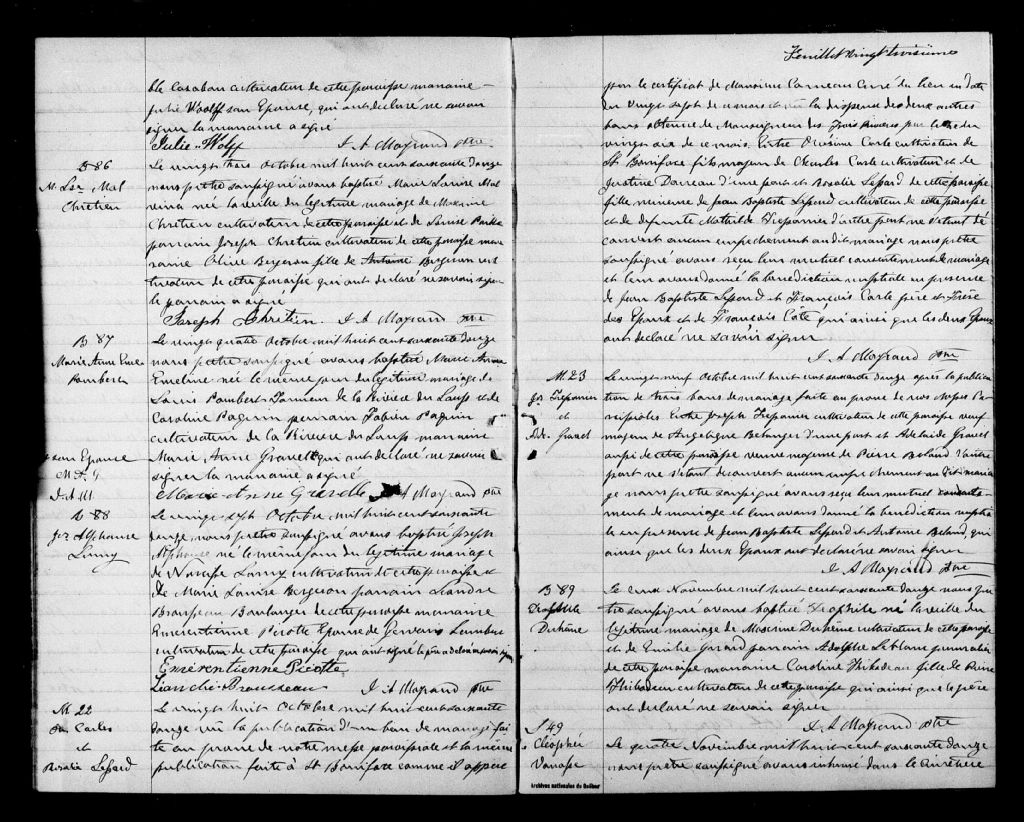 ble Casabon cultivateur de cette paroisse marraine
Julie Woolff son Epouse, qui ont déclaré ne savoir
signer la marraine a signé
Julie Wolff J A Mayrand Ptre
B 86
M. Lse Mal
Chretien
Le vingt trois Octobre mil huit cent soixante douze
nous prêtre soussigné avons baptisé Marie Louise Mal
vina née la veille du légitime mariage de Maxime
Chretien cultivateur de cette paroisse et de Louise
parrain Joseph Chretien cultivateur de cette paroisse mar
raine Olive Bergeron fille de Antoine Bergeron cul
tivateur de cette paroisse qui ont déclaré ne savoir signer
le parrain a signé
Joseph Chretien. J A Mayrand Ptre
B 87
Marie Anne Eme
Lambert
Le vingt quatre Octobre mil huit cent soixante douze
nous prêtre soussigné avons baptisé Marie Anne
Emeline née le même jour du légitime mariage de
Louis Lambert de la Rivière du Loup et de
Caroline Paquin parrain Fabien Paquin
cultivateur de la Rivière du Loup marraine
Marie Anne Gravel qui ont déclaré ne savoir
signer la marraine a signé
son Epouse
M A G
J A M
Marie Anne Gravelle J A Mayrand Ptre
B 88
Jos Alphonse
Lamy
Le vingt sept Octobre mil huit cent soixante
douze nous prêtre soussigné avons baptisé Joseph
Alphonse né le même jour du légitime mariage
de Narcisse Lamy cultivateur de cette paroisse et
de Marie Louise Bergeron parrain Leandre
Brousseau Boulanger de cette paroisse marraine
Emerentienne Picotte Epouse de Gervais
cultivateur de cette paroisse qui ont signé le père a déclaré ne savoir signer
Emérentienne Picotte
Liandre Brousseau J A Mayrand Ptre
M 22
Carles
et
Rosalie Lessard
Le vingt huit Octobre mil huit cent soixante
douze vu la publication d'un ban de mariage fai
te au prone de notre messe paroissiale et la même
publication faite à St Boniface comme il appert
Feuillet vingt troisième
par le certificat de Monsieur Carreau Curé du lieu en date
du vingt sept de ce mois et vu la dispense des deux autres
bans obtenue de Monseigneur des Trois Rivieres par lettre du
vingt six de ce mois. Entre Onésime Carle cultivateur de
St Boniface fils majeur de Charles Carle cultivateur et de
Justine d'une part et Rosalie Lessard de cette paroisse
fille mineure de Jean Baptiste Lessard cultivateur de cette paroisse
et de defunte Mathilde Trepannier d'autre part ne s'étant dé
couvert aucun empechement au dit mariage nous prêtre
soussigné avons reçu leur mutuel consentement de mariage
et leur avons donné la benediction nuptiale en presence
de Jean Baptiste Lessard et François Carle père et Frère
des Epoux et de François Côté qui ainsi que les deux Epoux
ont déclaré ne savoir signer
J A Mayrand Ptre
M. 23
Jos Trepannier
et
Ade. Gravel
Le vingt neuf Octobre mil huit cent soixante douze après la publica
tion de trois bans de mariage faite au prone de nos Messes Pa
roissiales Entre Joseph Trepannier cultivateur de cette paroisse veuf
majeur de Angelique Belanger d'une part et Adelaide Gravel
aussi de cette paroisse veuve majeure de Pierre Beland d'autre
part ne s'étant decouvert aucun empechement au dit maria
ge nous prêtre soussigné avons reçu leur mutuel consente-
ment de mariage et leur avons donné la benediction nuptia
le en presence de Jean Baptiste Lessard et Antoine Beland, qui
ainsi que les deux Epoux ont declaré ne savoir signer
J A Mayrand Ptre
B 89
Théophile
Duhême
Le Novembre mil huit cent soixante douze nous prê
tre soussigné avons baptisé Théophile né la veille du
légitime mariage de Maxime Duhême cultivateur de cette paroisse
et de Emilie Girard parrain Adolphe Leblanc journalier
de cette paroisse marraine Caroline Thibadeau fille de Pierre
Thibadeau cultivateur de cette paroisse qui ainsi que le père
ont declaré ne savoir signer
J A Mayrand Ptre
S 49
Cléophée
Vanasse
Le quatre Novembre mil huit cent soixante douze
nous prêtre soussigné avons inhumé dans le Cimetière
Archives nationales du Québec